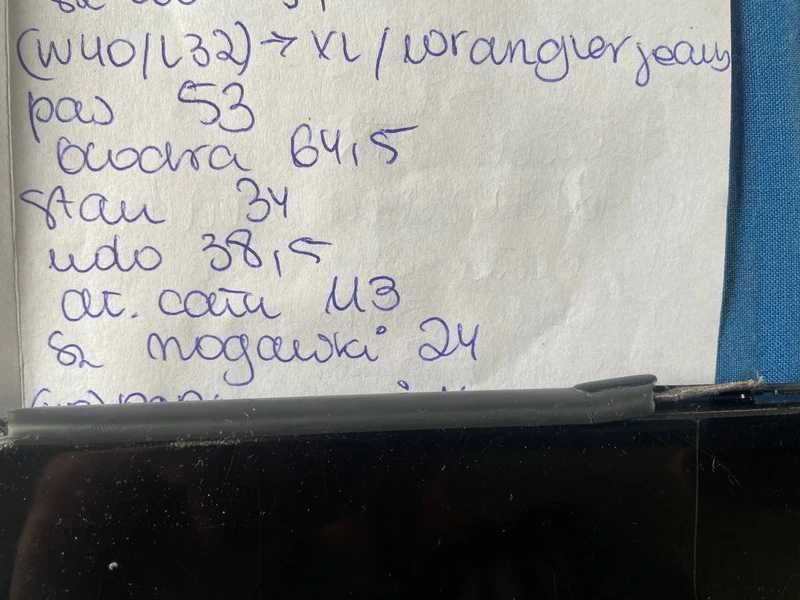 (W40/L32) → XL / wrangler jeans
pas 53
biodra 64,5
stan 34
udo 38,5
dł. cała 113
sz nogawki 24